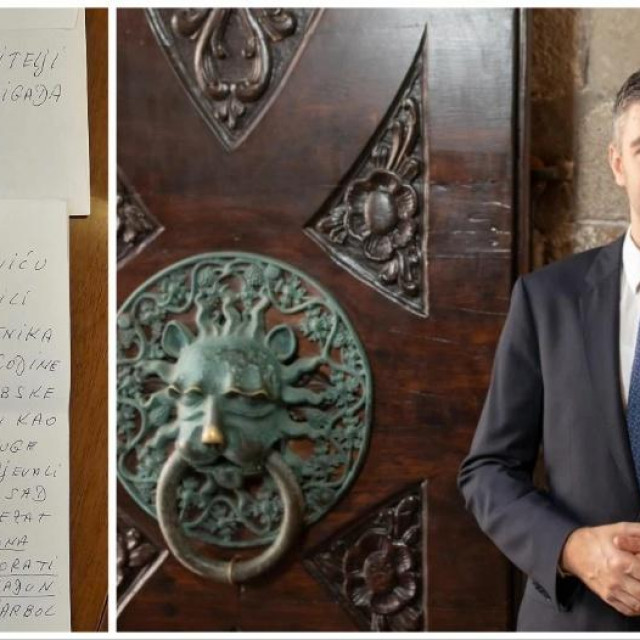 ITELJI
IGADA
VIĆU
ILI
TNIKA
GODINE
BSKE
KAO
UGE
JEVALI
SAD
EZAT
NA
ORATI
ARBOL